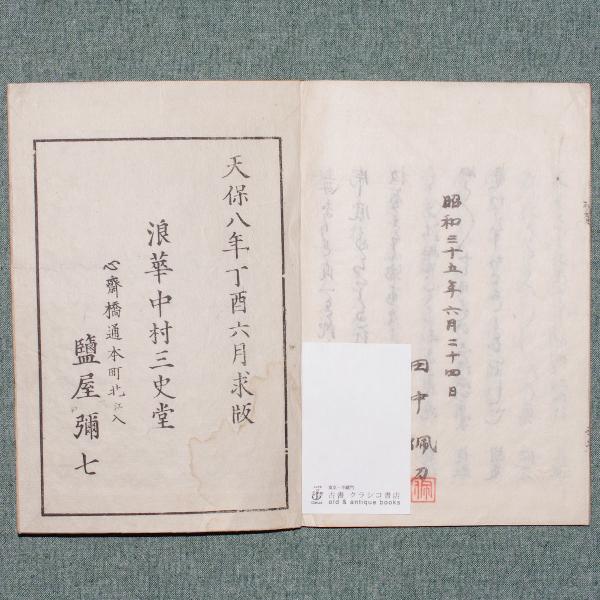 昭和三十五年六月二十四日
田中佩刀
天保八年丁酉六月求版
浪華中村三史堂
心齋橋通本町北江入
鹽屋彌七
東京・半蔵門
古書 クラシコ書店
old & antique books